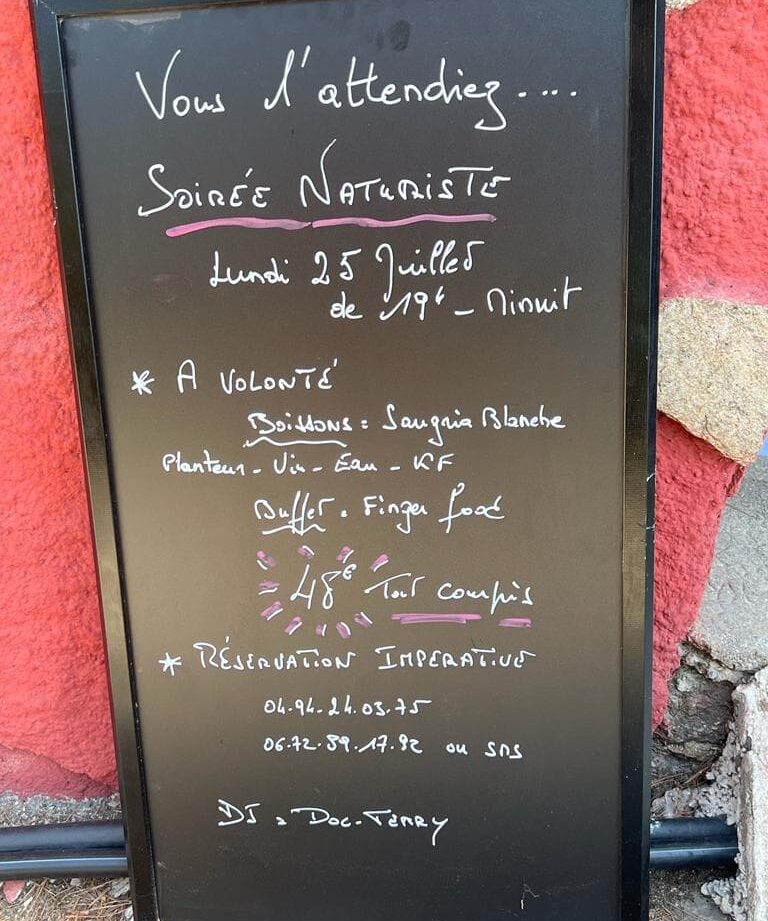 Vous l'attendiez....
SOIRÉE NATURISTE
Lundi 25 Juillet
de 19h - Minuit
* A VOLONTÉ
BOISSONS : Sangria Blanche
Planteur - Vin - Eau - KF
Buffet : Finger food
48€ Tout compris
* RÉSERVATION IMPERATIVE
04.94.24.03.75
06.72.89.17.92 ou SMS
DJ : DOC-TERRY